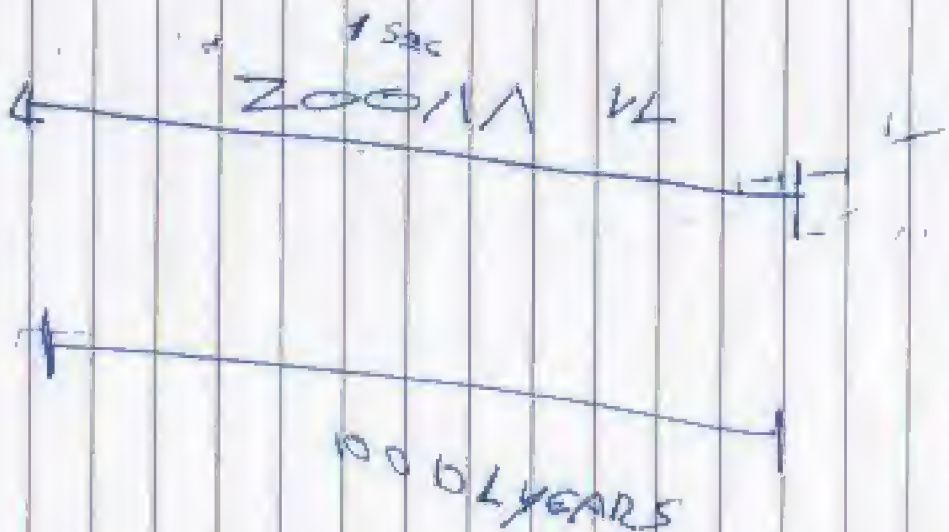 1 sec
ZOOM
1000 LYEARS